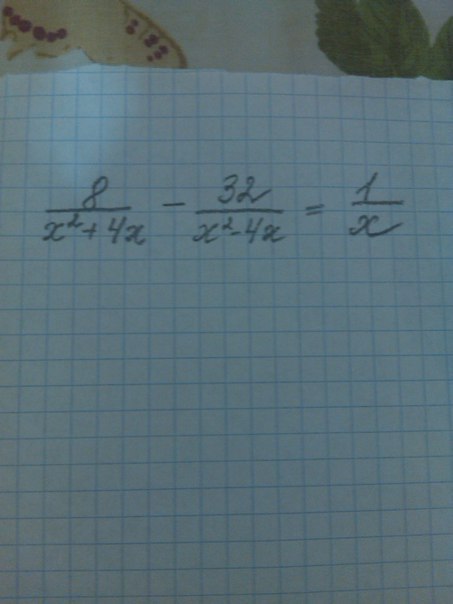 8/(x²+4x) - 32/(x²-4x) = 1/x